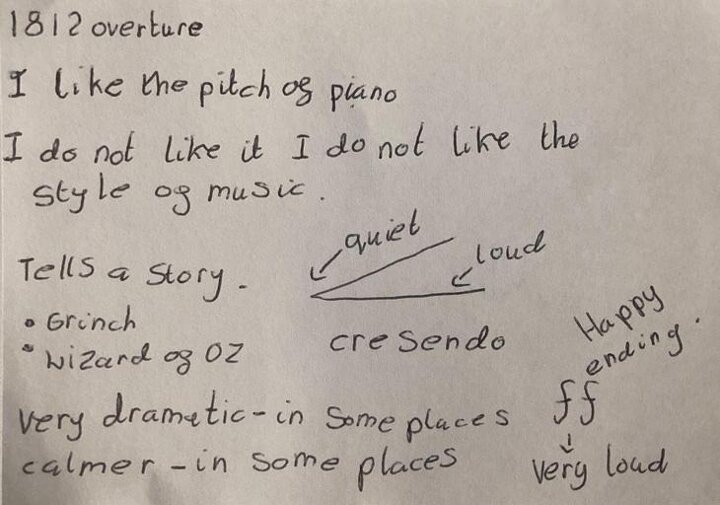 1812 overture
I like the pitch og piano
I do not like it I do not like the
style og music.
quiet
loud
Tells a story.
• Grinch
• Wizard og OZ
cresendo
Happy
ending.
very dramatic - in some places
ff
calmer - in some places
very loud